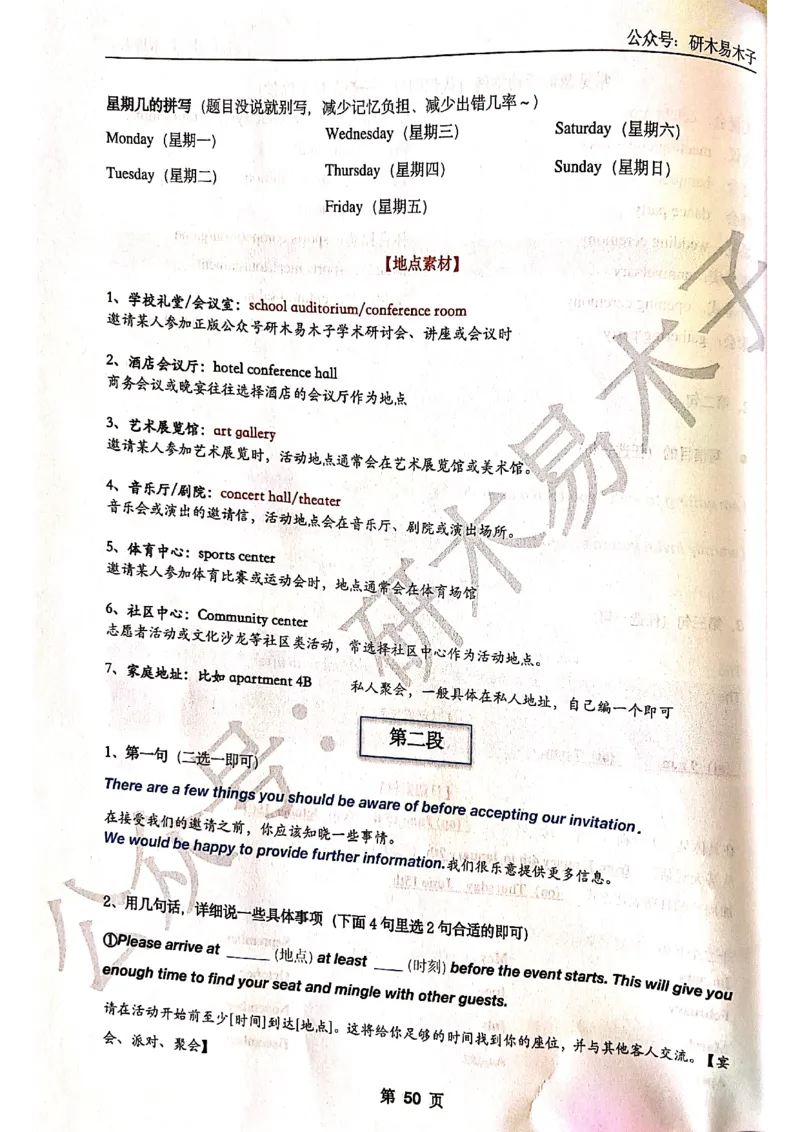 公众号：研木易木子
星期几的拼写（题目没说就别写，减少记忆负担、减少出错几率～）
Monday（星期一） Wednesday（星期三） Saturday（星期六）
Tuesday（星期二） Thursday（星期四） Sunday（星期日）
Friday（星期五）
【地点素材】
1、学校礼堂/会议室：school auditorium/conference room
邀请某人参加正版公众号研木易木子学术研讨会、讲座或会议时
2、酒店会议厅：hotel conference hall
商务会议或晚宴往往选择酒店的会议厅作为地点
3、艺术展览馆：art gallery
邀请某人参加艺术展览时，活动地点通常会在艺术展览馆或美术馆。
4、音乐厅/剧院：concert hall/theater
音乐会或演出的邀请信，活动地点会在音乐厅、剧院或演出场所。
5、体育中心：sports center
邀请某人参加体育比赛或运动会时，地点通常会在体育场馆
6、社区中心：Community center
志愿者活动或文化沙龙等社区类活动，常选择社区中心作为活动地点。
7、家庭地址：比如 apartment 4B 私人聚会，一般具体在私人地址，自己编一个即可
第二段
1、第一句（二选一即可）
There are a few things you should be aware of before accepting our invitation.
在接受我们的邀请之前，你应该知晓一些事情。
We would be happy to provide further information.我们很乐意提供更多信息。
2、用几句话，详细说一些具体事项（下面4句里选2句合适的即可）
①Please arrive at ______ (地点) at least ____ (时刻) before the event starts. This will give you
enough time to find your seat and mingle with other guests.
请在活动开始前至少[时间]到达[地点]。这将给你足够的时间找到你的座位，并与其他客人交流。【宴
会、派对、聚会】
第 50 页
公众号：研木易木子